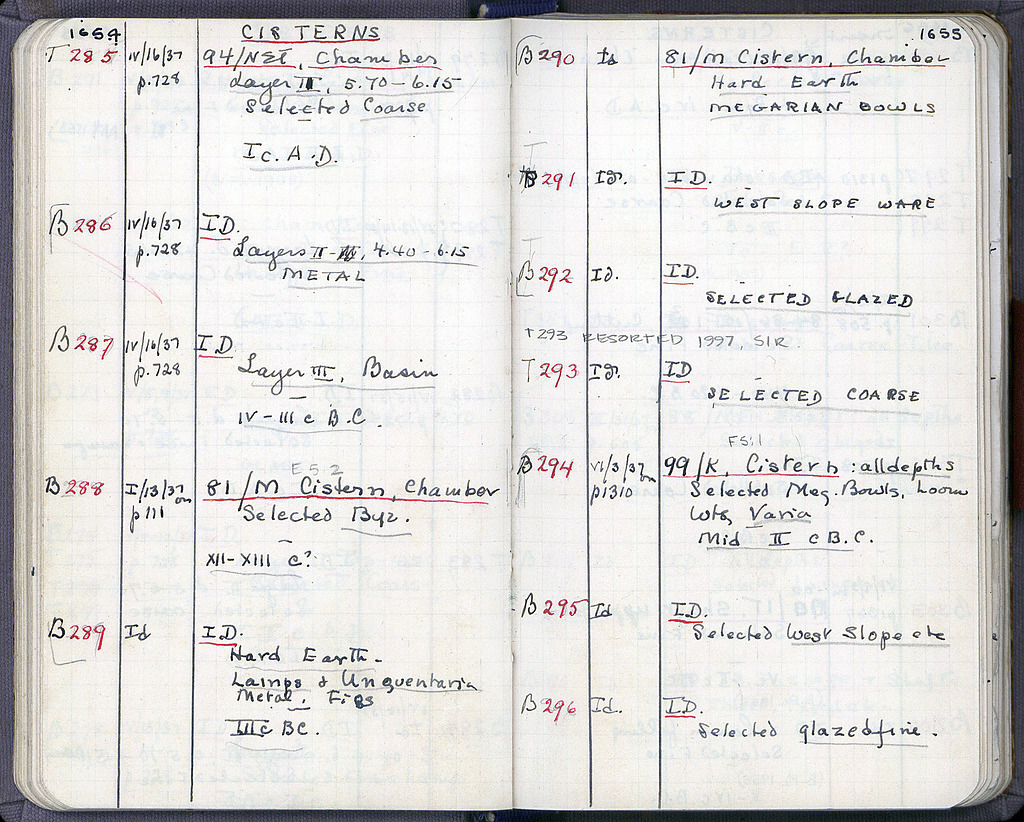 1654
CISTERNS
T 285 IV/16/37 94/NET, Chamber
p.728 Layer III, 5.70 - 6.15
Selected Coarse
I c. A.D.
B 286 IV/16/37 I.D.
p.728 Layers II - III, 4.40 - 6.15
METAL
B 287 IV/16/37 I.D.
p.728 Layer III, Basin
IV - III c B.C.
E 5:2
B 288 I/13/37 on 81/M Cistern, Chamber
p 111 Selected Byz.
XII - XIII c?
B 289 Id I.D.
Hard Earth -
Lamps & Unguentaria
Metal, Figs
III c BC.
1655
B 290 Id 81/M Cistern, Chamber
Hard Earth
MEGARIAN BOWLS
B 291 Id. I.D.
WEST SLOPE WARE
B 292 Id. I.D.
SELECTED GLAZED
T 293 RESORTED 1997 SIR
T 293 Id. I.D
SELECTED COARSE
F 5:1
B 294 VI/3/37 on 99/K, Cistern : all depths
p 1310 Selected Meg. Bowls, Loom
Wts, Varia
Mid II c B.C.
B 295 Id I.D.
Selected West Slope etc
B 296 Id. I.D.
Selected glazed fine.